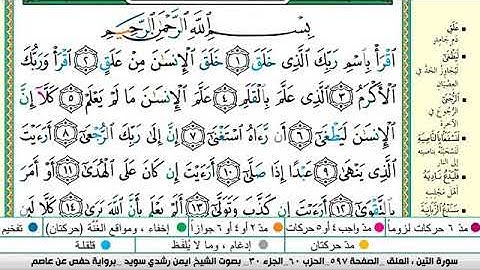 بِسْمِ ٱللَّهِ ٱلرَّحْمَٰنِ ٱلرَّحِيمِ
ٱقْرَأْ بِٱسْمِ رَبِّكَ ٱلَّذِى خَلَقَ ١ خَلَقَ ٱلْإِنسَٰنَ مِنْ عَلَقٍ ٢ ٱقْرَأْ وَرَبُّكَ
ٱلْأَكْرَمُ ٣ ٱلَّذِى عَلَّمَ بِٱلْقَلَمِ ٤ عَلَّمَ ٱلْإِنسَٰنَ مَا لَمْ يَعْلَمْ ٥ كَلَّآ إِنَّ
ٱلْإِنسَٰنَ لَيَطْغَىٰٓ ٦ أَن رَّءَاهُ ٱسْتَغْنَىٰٓ ٧ إِنَّ إِلَىٰ رَبِّكَ ٱلرُّجْعَىٰٓ ٨ أَرَءَيْتَ
ٱلَّذِى يَنْهَىٰ ٩ عَبْدًا إِذَا صَلَّىٰٓ ١٠ أَرَءَيْتَ إِن كَانَ عَلَى ٱلْهُدَىٰٓ ١١ أَوْ أَمَرَ
بِٱلتَّقْوَىٰٓ ١٢ أَرَءَيْتَ إِن كَذَّبَ وَتَوَلَّىٰٓ ١٣ أَلَمْ يَعْلَم بِأَنَّ ٱللَّهَ يَرَىٰ ١٤ كَلَّا لَئِن
عَلَقٍ
دم جامد
لَيَطْغَىٰ
ليجاوز الحد في
العصيان
الرُّجْعَىٰ
الآخرة
لَنَسْفَعًا بِالنَّاصِيَةِ
لنسحبنه بناصيته
إلى النار
فَلْيَدْعُ نَادِيَهُ
أهل مجلسه
سَنَدْعُ الزَّبَانِيَةَ
مدّ ٦ حركات لزوماً مدّ واجب ٤ أو ٥ حركات مدّ ٢ أو ٤ أو ٦ جوازاً إخفاء، ومواقع الغُنَّة (حركتان) تفخيم
مدّ حركتان إدغام، وما لا يُلفَظ قلقلة
سورة التين، العلق. الصفحة ٥٩٧. الحزب ٦٠. الجزء ٣٠. بصوت الشيخ ايمن رشدي سويد. برواية حفص عن عاصم